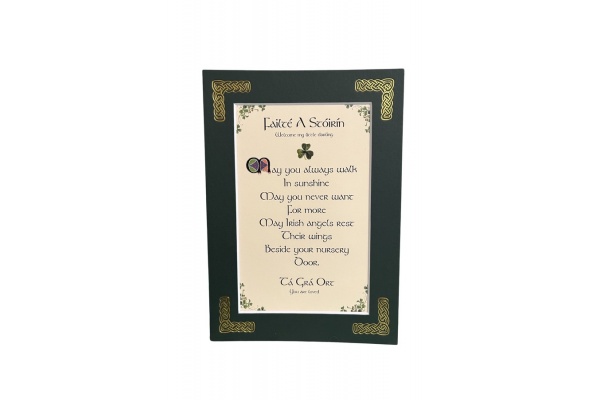 Failté A Stóirín
Welcome my little darling
May you always walk
In sunshine
May you never want
For more
May Irish angels rest
Their wings
Beside your nursery
Door.
Tá Grá Ort
(You are loved)